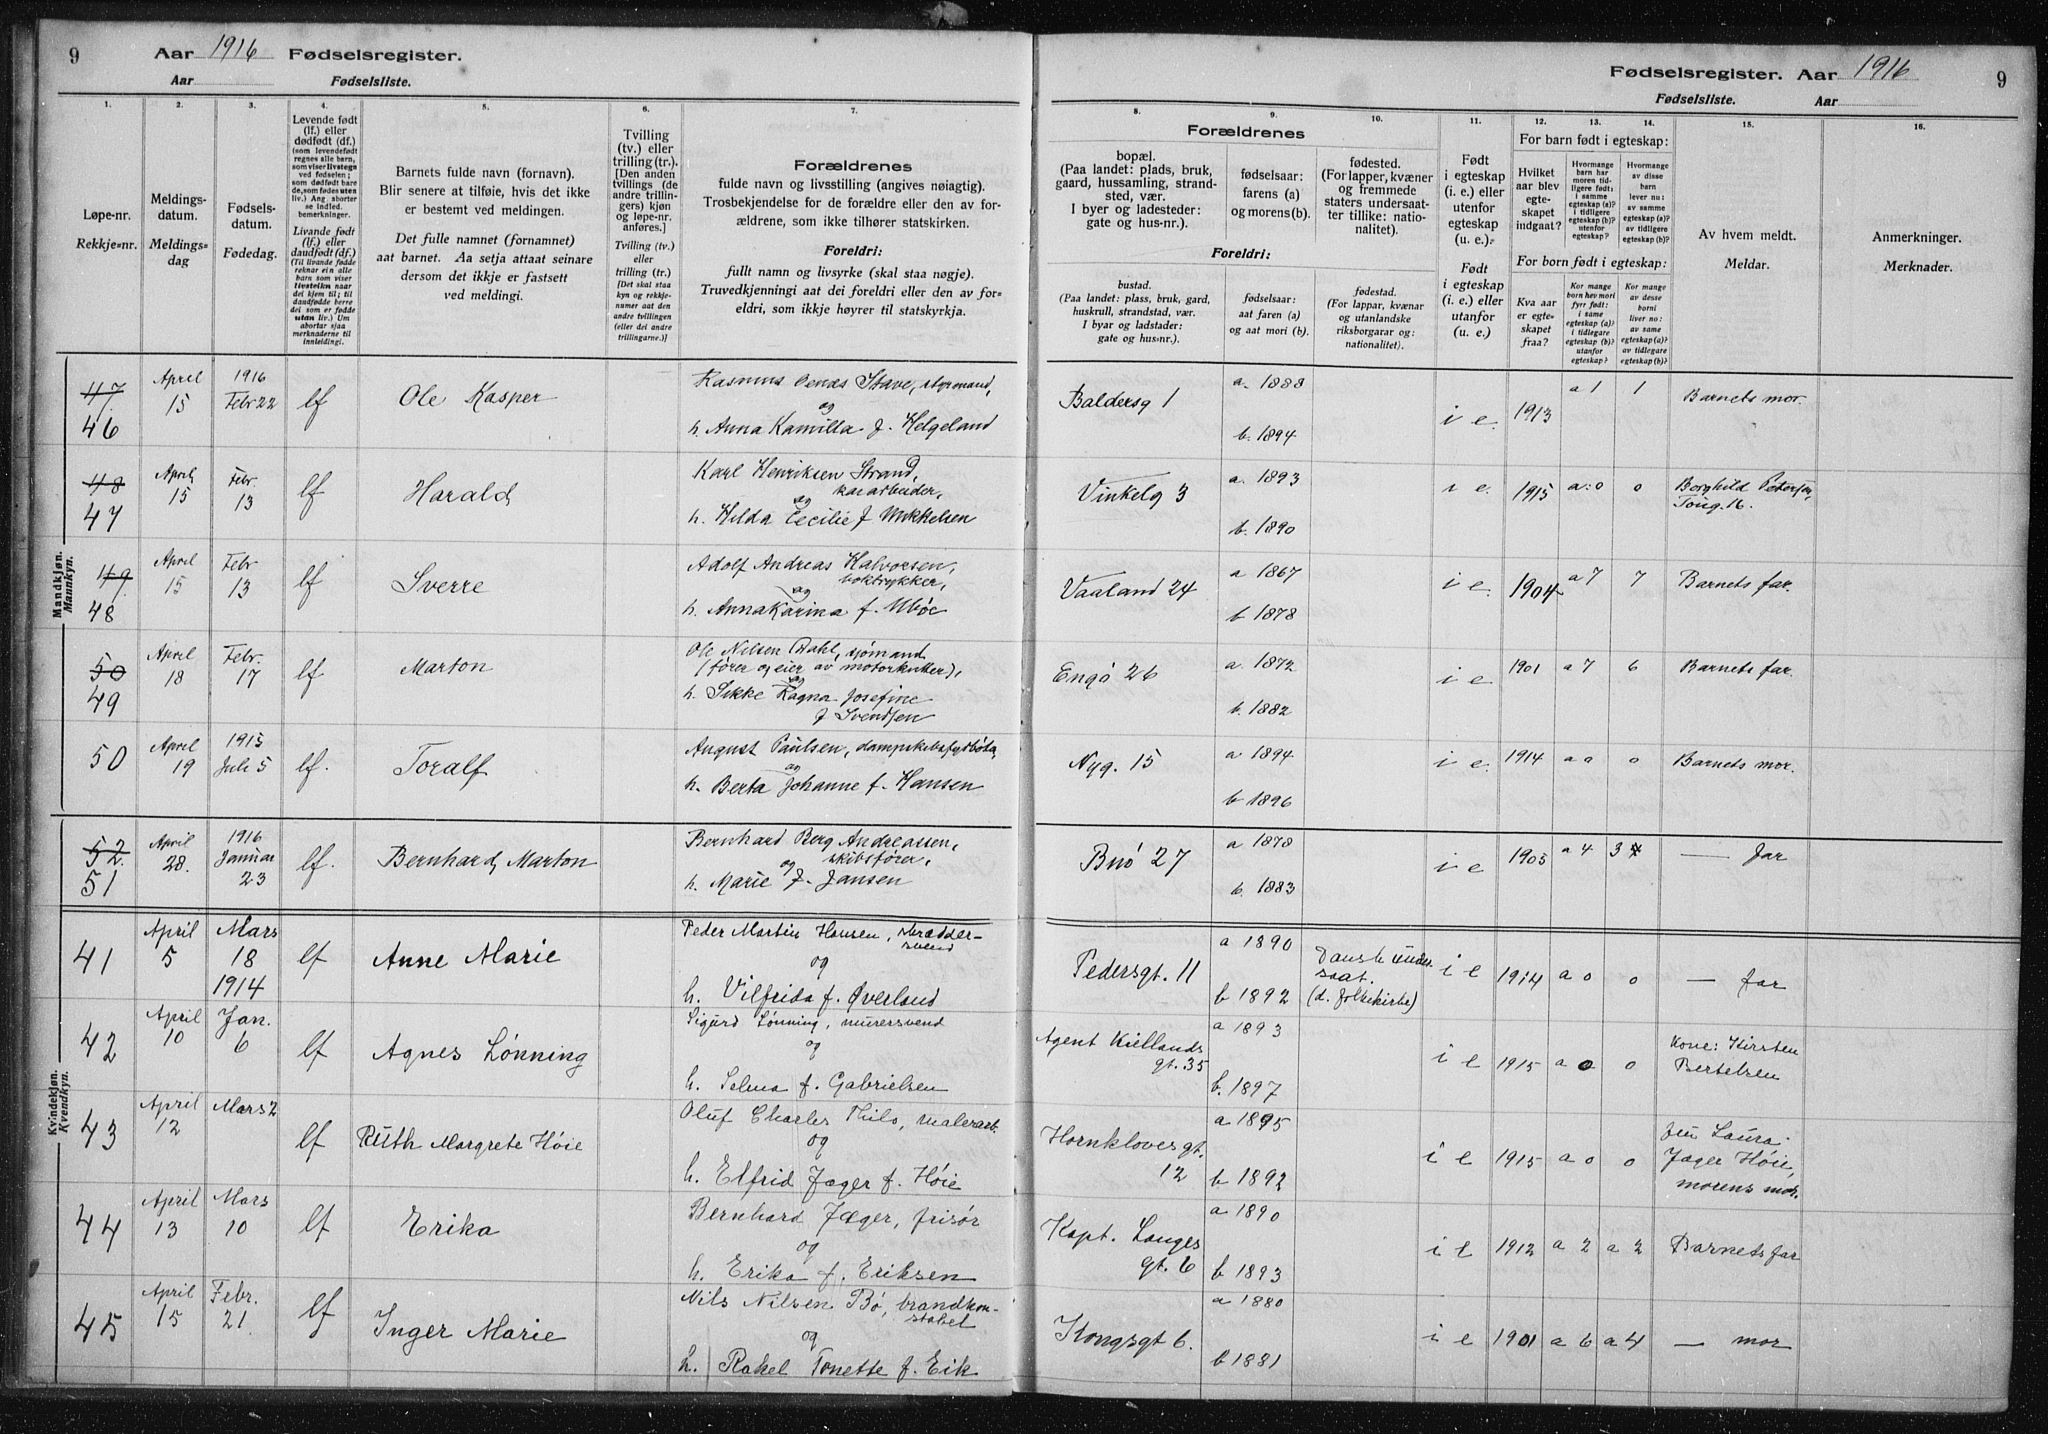 9 Aar 1916 Fødselsregister.
Aar Fødselsliste.
Fødselsregister. Aar 1916 9
Fødselsliste. Aar
1. 2. 3. 4. 5. 6. 7.
8. 9. 10. 11. 12. 13. 14. 15. 16.
Løpe-nr.
Rekkje-nr.
Meldings-
datum.
Meldings-
dag
Fødsels-
datum.
Fødedag.
Levende født
(lf.) eller
dødfødt (df.)
(som levendefødt
regnes alle barn,
som viser livstegn
ved fødselen;
som dødfødt bare
de, som fødes uten
liv.) Ang. aborter
se indled.
bemerkninger.
Livande født
(lf.) eller
daudfødt (df.)
(Til livande fødde
reknar ein alle
barn som viser
livsteikn naar
dei kjem til; til
daudfødde berre
dei som er fødde
utan liv.) Um
abortar sjaa
merknaderne til
innleidingi.
Barnets fulde navn (fornavn).
Blir senere at tilføie, hvis det ikke
er bestemt ved meldingen.
Det fulle namnet (fornamnet)
aat barnet. Aa setja attaat seinare
dersom det ikkje er fastsett
ved meldingi.
Tvilling
(tv.) eller
trilling (tr.).
[Den anden
tvillings (de
andre trillin-
gers) kjøn
og løpe-nr.
anføres.]
Tvilling (tv.)
eller
trilling (tr.)
[Det skal staa
kyn og rekkje-
numer aat den
andre tvillingen
(eller dei andre
trillingarne.)]
Forældrenes
fulde navn og livsstilling (angives nøiagtig).
Trosbekjendelse for de forældre eller den av for-
ældrene, som ikke tilhører statskirken.
Foreldri:
fullt namn og livsyrke (skal staa nøgje).
Truvedkjenningi aat dei foreldri eller den av for-
eldri, som ikkje høyrer til statskyrkja.
Forældrenes
bopæl.
(Paa landet: plads, bruk,
gaard, hussamling, strand-
sted, vær.
I byer og ladesteder:
gate og hus-nr.).
fødselsaar:
farens (a)
og morens (b).
fødested.
(For lapper, kvæner
og fremmede
staters undersaat-
ter tillike: natio-
nalitet).
Foreldri:
bustad.
(Paa landet: plass, bruk, gard,
huskrull, strandstad, vær.
I byar og ladstader:
gate og hus-nr.).
fødselsaar:
aat faren (a)
og aat mori (b).
fødestad.
(For lappar, kvænar
og utanlandske
riksborgarar og:
nationalitet).
Født
i egteskap
(i. e.) eller
utenfor
egteskap
(u. e.).
Født
i egteskap
(i. e.) eller
utanfor
(u. e.)
For barn født i egteskap:
Hvilket
aar blev
egte-
skapet
indgaat?
Hvormange
barn har
moren tid-
ligere født:
i samme
egteskap (a)?
i tidligere
egteskap (b)?
utenfor
egteskap?
Hvormange
av disse
barn
lever nu:
av samme
egteskap (a)?
av tidligere
egteskap (b)?
For born født i egteskap:
Kva aar
er egte-
skapet
fraa?
Kor mange
born hev mori
fyrr født:
i same
egteskap (a)?
i tidlegare
egteskap (b)?
utanfor
egteskap?
Kor mange
av desse
borni
liver no:
av same
egteskap (a)?
av tidlegare
egteskap (b)?
Av hvem meldt.
Meldar.
Anmerkninger.
Merknader.
Mandkjøn.
Mannkyn.
47 April 15 1916 Febr 22 lf Ole Kasper Rasmus Stave, styrmand,
46 og
h. Anna Kamilla f. Helgeland
Baldersg 1 a. 1888 b. 1894 i e. 1913 a 1 1 Barnets mor.
48 April 15 Febr. 13 lf Harald Karl Henriksen Strand,
47 og
h. Hilda Cecilie f Mikkelsen
Vinkelg 3 a. 1893 b. 1890 i e. 1915 a. 0 0 Borghild Petersen,
49 April 15 Febr 13 lf Sverre Adolf Andreas Halvorsen,
boktrykker,
48 og
h. Anna Karina f.
Vaaland 24 a 1867 b 1878 i e. 1904 a 7 7 Barnets far.
50 April 18 Febr. 17 lf Marton Ole Nilsen Dahl, sjømand
(fører og eier av motorkutter),
49 og
h. Sikke Ragna Josefine
f Svendsen
Engø 26 a. 1872 b. 1882 i e 1901 a 7 6 Barnets far.
50 April 19 1915 Juli 5 lf. Toralf August Paulsen,
og
h. Berta Johanne f. Hansen
Nyg. 15 a 1894 b 1896 i e. 1914 a 0 0 Barnets mor.
52. April 28. 1916 Januar 23 lf. Bernhard Marton Bernhard Berg Andreassen,
skibsfører,
51 og
h. Marie f. Jansen
Buø 27 a 1878 b. 1883 i e 1905 a 4 3 — far
Kvindekjøn.
Kvendkyn.
41 April 5 Mars 18 1914 lf Anne Marie Peder Martin Hansen, skrædder-
svend
og
h. Vilfrida f. Øverland
Pedersgt. 11 a 1890 b 1892 Dansk under-
saat.
(d. folkekirke) i e 1914 a 0 0 — far
42 April 10 Jan. 6 lf Agnes Lønning Sigurd Lønning, murersvend
og
h. Selma f. Gabrielsen
Agent Kiellands
gt. 35 a 1893 b. 1897 i e 1915 a 0 0 Kone: Kirsten
Bertelsen
43 April 12 Mars 2 lf Ruth Margrete Høie Oluf Charles Thilo, malerarb.
og
h. Elfrid Jæger f. Høie
Hornkloves gt.
12 a 1895 b 1892 i e 1915 a 0 0 Fru Laura
Jæger Høie,
morens mor.
44 April 13 Mars 10 lf Erika Bernhard Jæger, frisør
og
h. Erika f. Eriksen
Kapt. Langes
gt. 6 a 1890 b 1893 i e 1912 a 2 a 2 Barnets far
45 April 15 Febr. 21. lf Inger Marie Nils Nilsen Bø, brandkon-
stabel
og
h. Rakel Tonette f. Eik
Kongsgt 6. a 1880 b 1881 i e 1901 a 6 a 4 — mor